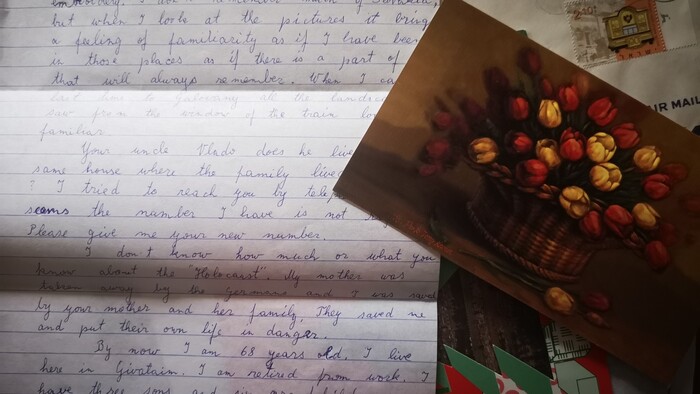 embroidery. I don't remember much of Slovakia,
but when I look at the pictures it bring
a feeling of familiarity as if I have been
in those places as if there is a part of
that will always remember. When I ca
last hour to Galovany all the landsc
saw from the window of the train lo
familiar
Your uncle Vlado does he live
same house where the family live
? I tried to reach you by tele
seems the number I have is not
Please give me your new number.
I don't know how much or what you
know about the "Holocaust". My mother was
taken away by the Germans and I was saved
by your mother and her family. They saved me
and put their own life in danger.
By now I am 68 years old, I live
here in Givataim. I am retired from work. I
have three sons and
AIR MAIL